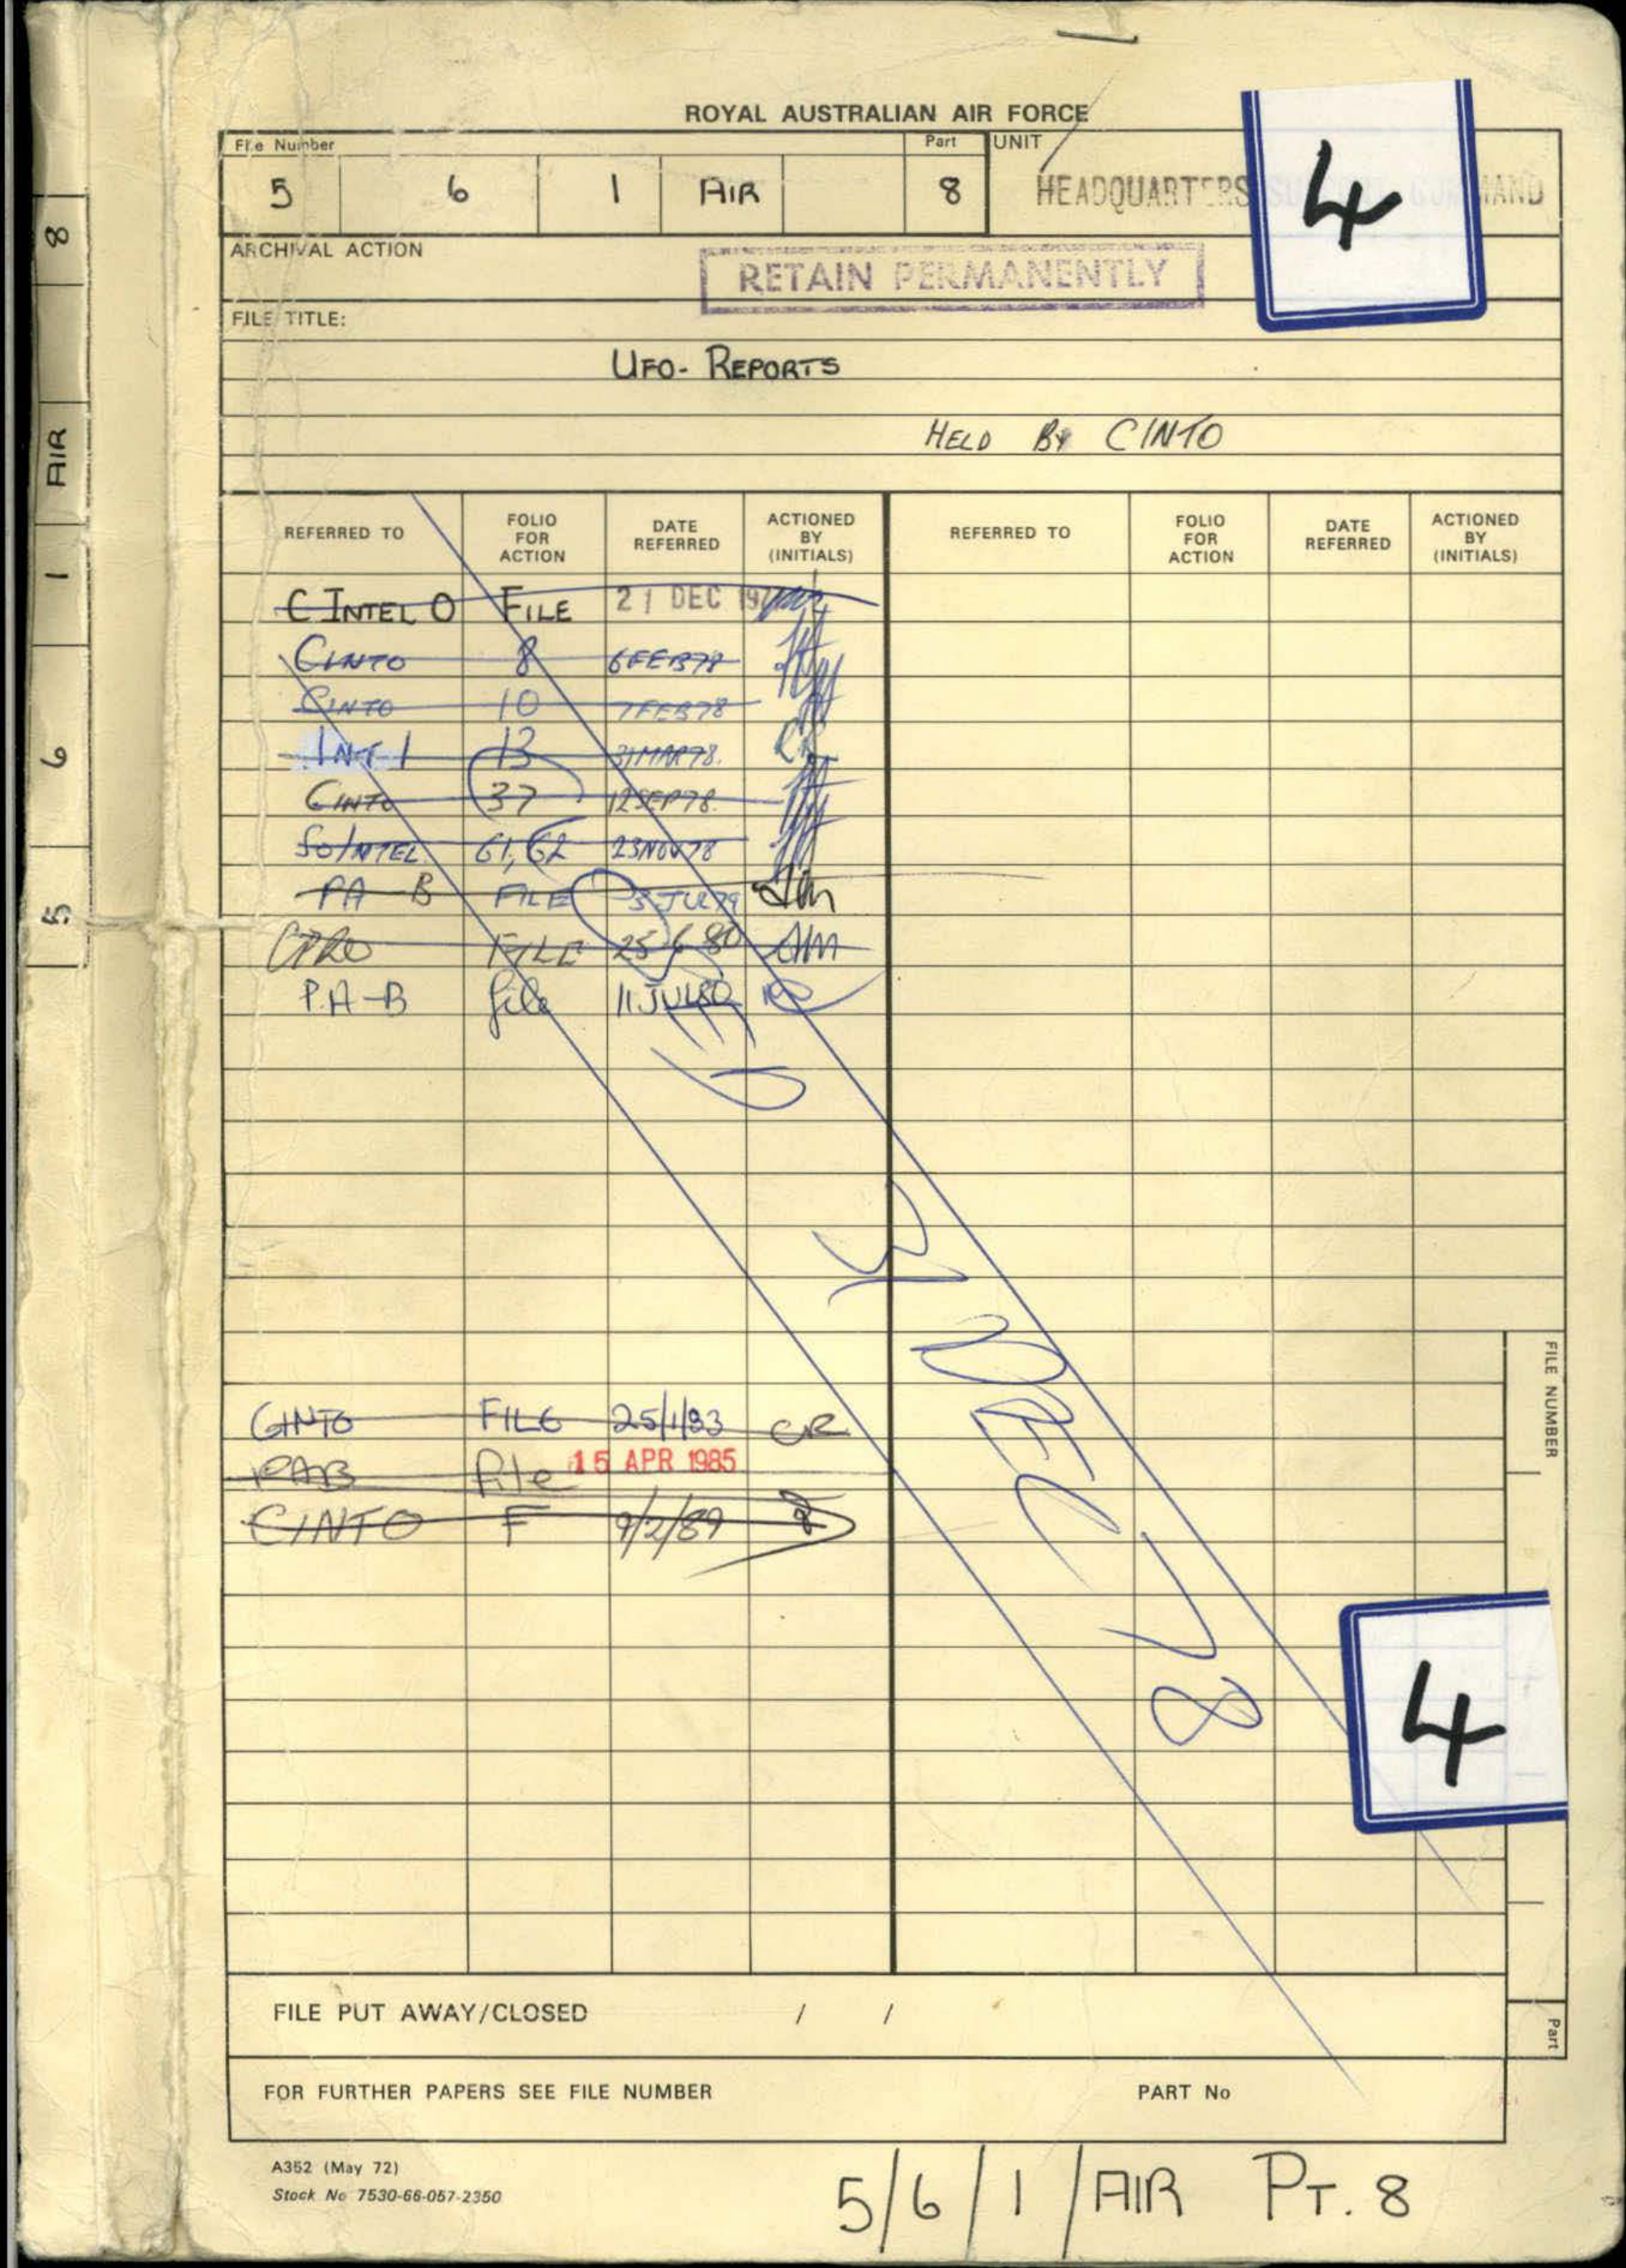 ROYAL AUSTRALIAN AIR FORCE
File Number Part UNIT
5 6 1 AIR 8 HEADQUARTERS
4
ARCHIVAL ACTION
RETAIN PERMANENTLY
FILE TITLE:
UFO- REPORTS
HELD BY CINTO
REFERRED TO FOLIO FOR ACTION DATE REFERRED ACTIONED BY (INITIALS) REFERRED TO FOLIO FOR ACTION DATE REFERRED ACTIONED BY (INITIALS)
C INTEL O FILE 21 DEC
CINTO 8 6FEB78
CINTO 10 7FEB78
INT 1 13 31MAR78.
CINTO 37 12SEP78.
SOINTEL 61, 62 23NOV78
PA-B FILE 3JUL79
FILE 25 6 80
P.A-B file 11JUL80
31 DEC 78
CINTO FILE 25/1/83 CR
PAB file 15 APR 1985
CINTO F 9/2/89
FILE NUMBER
4
FILE PUT AWAY/CLOSED / /
Part
FOR FURTHER PAPERS SEE FILE NUMBER PART No
A352 (May 72)
Stock No 7530-66-057-2350
5/6/1/AIR PT. 8
5 6 1 AIR 8